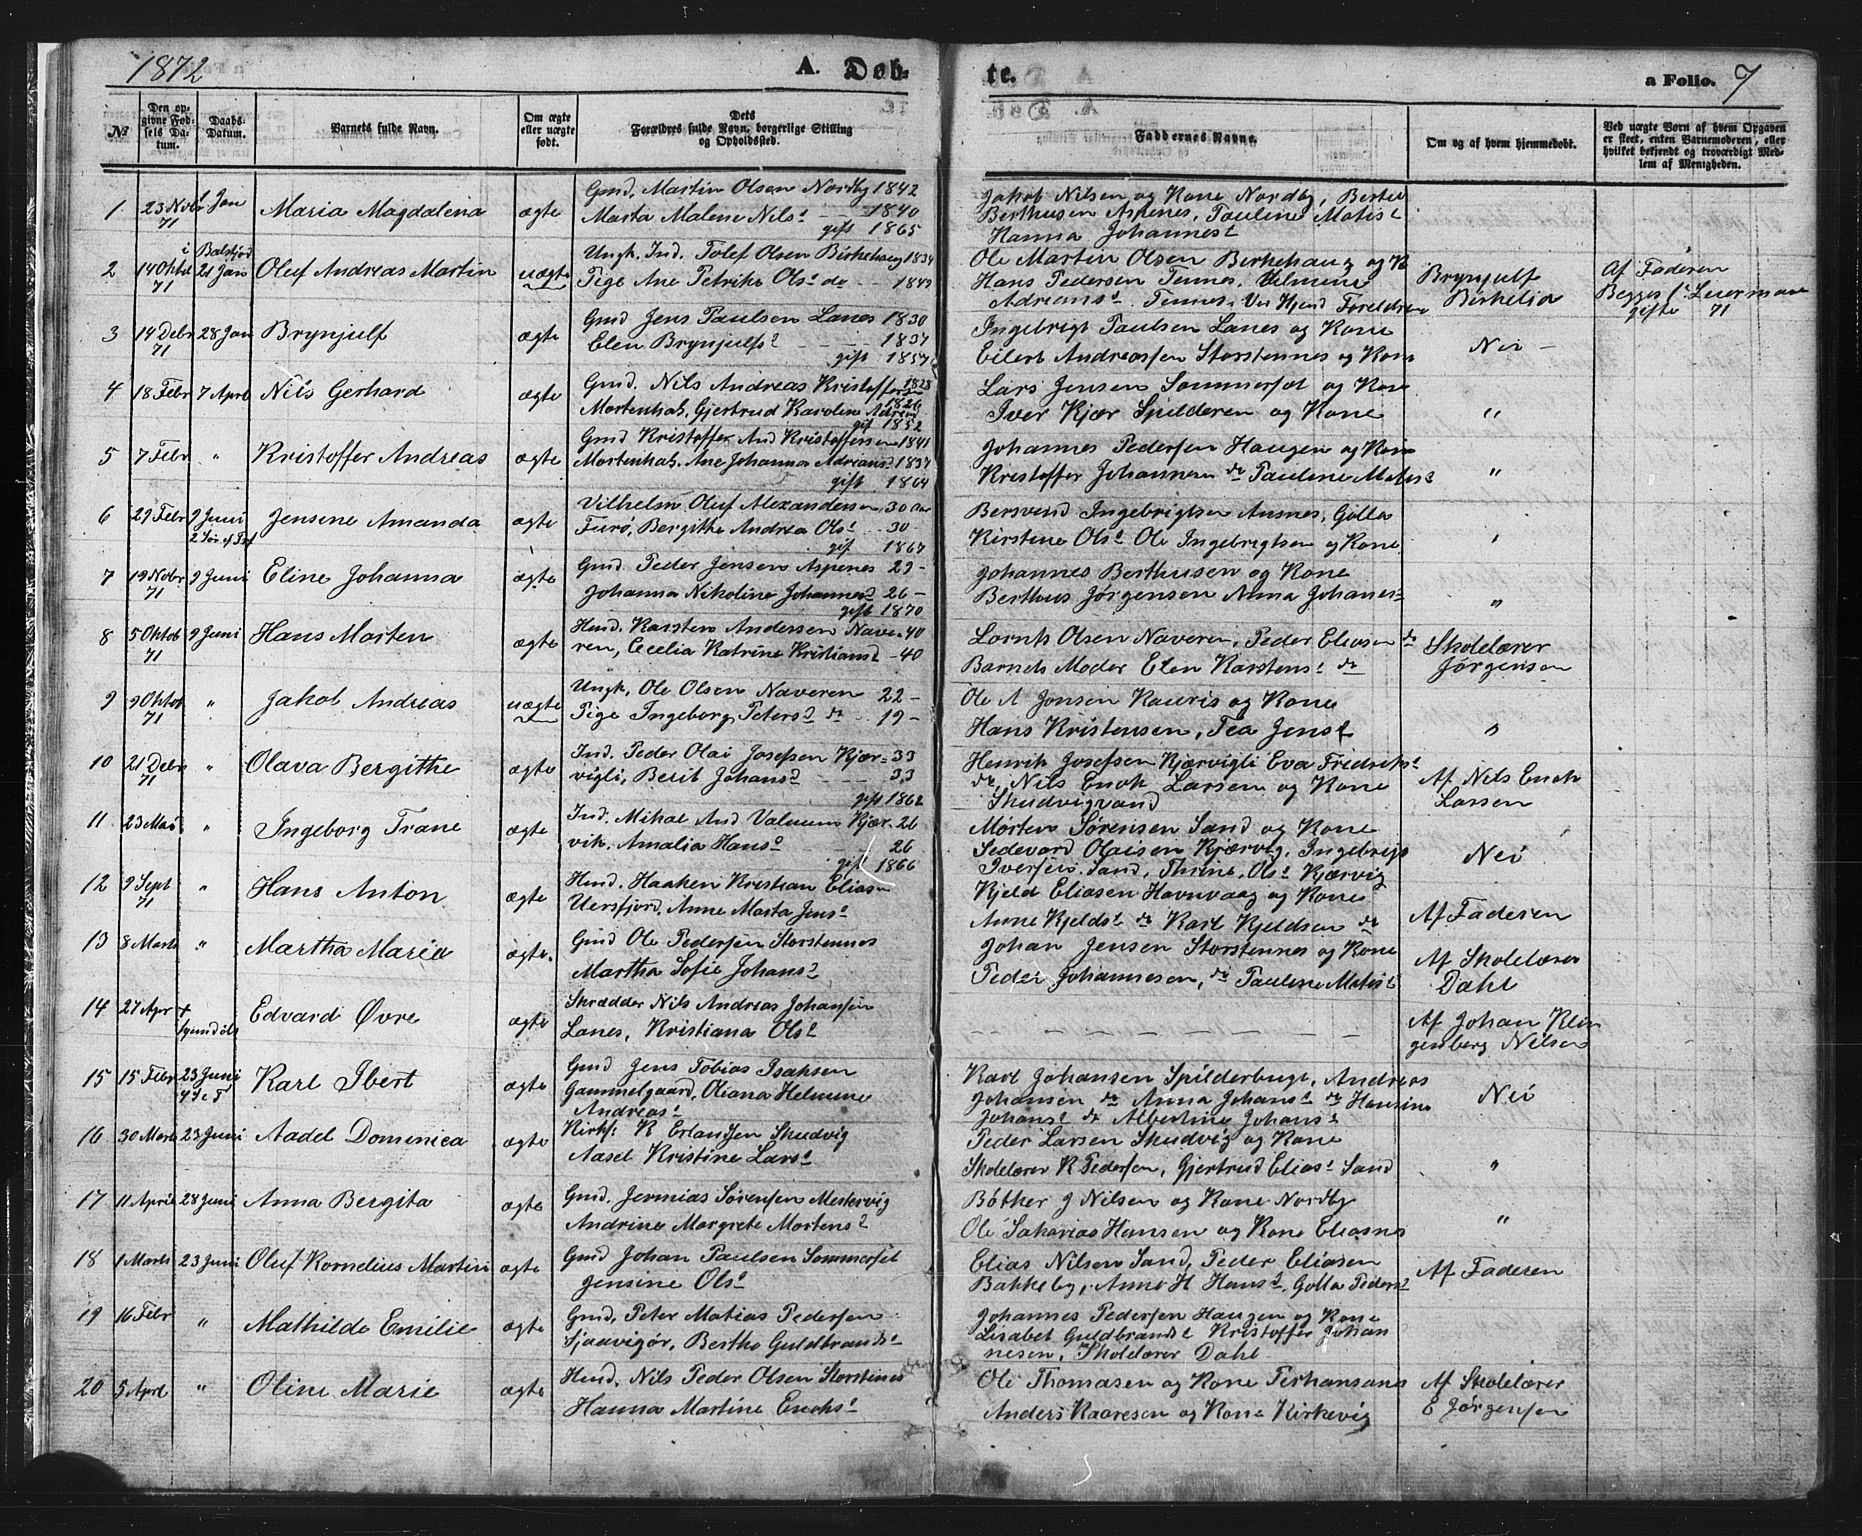 1872 A. Døb-
te. a Folio. 7
No
Den op-
givne Fød-
sels Da-
tum.
Daabs-
Datum.
Barnets fulde Navn.
Om ægte
eller uægte
født.
Dets
Forældres fulde Navn, borgerlige Stilling
og Opholdssted.
Faddernes Navne.
Om og af hvem hjemmedøbt.
Ved uægte Børn af hvem Opgaven
er skeet, enten Barnemoderen, eller
hvilket bekjendt og troværdigt Med-
lem af Menigheden.
1 23 Novb 71 1 Jan Maria Magdalena ægte
Gmd, Martin Olsen Nordby 1842
Marta Malene Nilsd 1840
gift 1865
Jakob Nilsen og Kone Nordby, Bertel
Berthusen Aspenes, Pauline Matisd
Hanna Johannesd
2 14 Oktob 71 i Balsfjord 21 Jan Oluf Andreas Martin uægte
Ungk. Ind. Tolef Olsen Birkehaug 1834
Pige Ane Petrike Olsd do 1849
Ole Martin Olsen Birkehaug og K
Hans Pedersen Tennes, Elmine
Adriansd Tennes. Ver Hjmd Foreldren
Brynjulf
Birkelia
Af Faderen
Begges 1st Leiermaal
gifte 71
3 14 Debr 71 28 Jan Brynjulf ægte
Gmd Jens Paulsen Lanes 1830
Elen Brynjulfsd 1837
gift 1857
Ingebrigt Paulsen Lanes og Kone
Eilert Andreassen Storstennes og Kone
Nei
4 18 Febr 7 Aprl Nils Gerhard ægte
Gmd. Nils Andreas Kristoffersen 1828
Mortenhals, Gjertrud Karoline Adrian 1826
gif 1852
Lars Jensen Sommersæt og Kone
Iver Kjær Spilderen og Kone
"
5 7 Febr " Kristoffer Andreas ægte
Gmd Kristoffer And Kristoffersen 1841
Mortenhals. Ane Johanna Adriansd 1837
gift 1864
Johannes Pedersen Haugen og Kone
Kristoffer Johannesen do Pauline Matisd
"
6 29 Febr 9 Juni 2 Søn e/ Tref Jensine Amanda ægte
Vilhelm Oluf Alexandersen 30 Aar
Turø, Bergithe Andrea Olsd 30
gif 1867
Bersvend Ingebrigtsen Ansnes, Golla
Kirstene Olsd Ole Ingebrigtsen og Kone
"
7 19 Novbr 71 9 Juni Eline Johanna ægte
Gmd. Peder Jensen Aspenes 29
Johanna Nikoline Johannesd 26
gift 1870
Johannes Berthusen og Kone
Berthus Jørgensen Anna Johanesd
"
8 5 Oktob 71 9 Juni Hans Morten ægte
Hmd. Karsten Andersen Nave 40
ren, Cecelia Katrine Kristiansd 40
Lornts Olsen Naveren, Peder Eliasen do
Barnets Moder Elen Karstensd do
Skolelærer
Jørgensen
9 9 Oktob 71 " Jakob Andreas uægte
Ungk, Ole Olsen Naveren 22
Pige Ingeborg Petersd do 19
Ole A Jonsen Kauris og Kone
Hans Kristensen, Tea Jensd
"
10 21 Debr 71 " Olava Bergithe ægte
Ind. Peder Olai Josefsen Kjær- 33
vigli, Berit Johansd 33
gift 1862
Henrik Josefsen Kjærvigli Eva Fredriksd
do, Nils Enok Larsen og Kone
Skudvigvand
Af Nils Enok
Larsen
11 23 Mai " Ingeborg Trane ægte
Ind. Mikal And Valnum Kjær- 26
vik. Amalia Hansd 26
gif 1866
Morten Sørensen Sand og Kone
Sedevard Olaisen Kjærvig, Ingebrigt
Iversen Sand, Thrine Olsd Kjærvig
Nei
12 9 Sept 71 " Hans Anton ægte
Hmd. Haaken Kristian Eliasn
Uersfjord, Anne Marta Jensd
Kjeld Eliasen Havnvaag og Kone
Anne Kjeldsd do Karl Kjeldsen do
Af Faderen
13 8 Marts " Martha Maria ægte.
Gmd Ole Pedersen Storstennes
Martha Sofie Johansd
Johan Jensen Storstennes og Kone
Peder Johannesen, do Pauline Matisd
Af Skolelærer
Dahl
14 27 Apr + Edvard Øvre ægte
Skrædder Nils Andreas Johansen
Lanes, Kristiana Olsd
— — — — — — —
Af Johan Klin
genberg Nilsen
15 15 Febr 23 Juni 4 S e T Karl Ibert ægte
Gmd Jens Tobias Isaksen
Gammelgaard, Oliana Helmine
Andreasd
Karl Johansen Spilderbugt, Andreas
Johansen do Anna Johansd do Hansine
Johansd do Albertine Johansd
Nei
16 30 Marts 23 Juni Aadel Dominica ægte
Kirks. K Erlandsen Skudvig
Aasel Kristine Larsd
Peder Larsen Skudvig og Kone
Skolelærer K Pedersen, Gjertrud Eliasd Sand
"
17 11 April 28 Juni Anna Bergita ægte
Gmd. Jermias Sørensen Mestervig
Andrine Margrete Mortensd
Bøtker J Nilsen og Kone Nordby
Ole Sakarias Hansen og Kone Eliasnes
"
18 1 Marts 23 Juni Oluf Kornelius Martin ægte
Gmd Johan Paulsen Sommersæt
Jensine Olsd
Elias Nilsen Sand, Peder Eliasen
Bakkeby, Anne H Hansd. Golla Pedersd
Af Faderen
19 16 Febr " Mathilde Emilie ægte
Gmd, Peter Matias Pedersen
Sjaavigør, Berthe Guldbrandsd
Johannes Pedersen Haugen og Kone
Lisabet Guldbrandsd Kristoffer Johan
nesen, Skolelærer Dahl
20 5 Aprl " Oline Marie ægte
Hmd. Nils Peder Olsen Storstenes
Hanna Martine Enoksd
Ole Thomasen og Kone Perhansans
Anders Kaaresen og Kone Kirkevig
Af Skolelærer
E Jørgensen